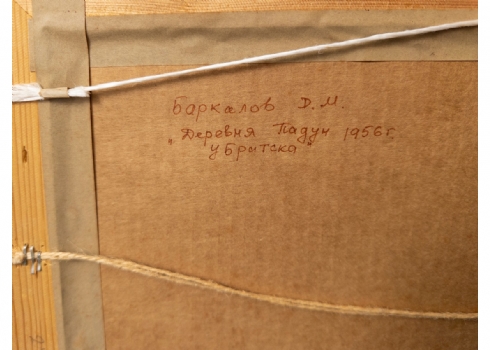 Баркалов Д.М.
„Деревня Падун 1956 г.
у Братска"